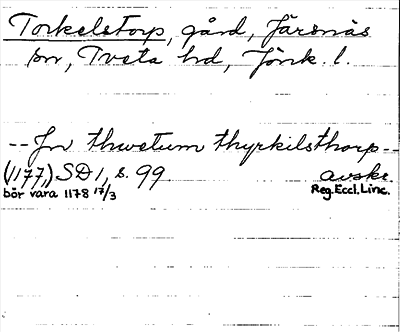 Torkelstorp, gård, Järsnäs
sn, Tveta hd, Jönk. l.
--Jn thwetum thyrkilsthorp--
(1177,) SD 1, s. 99. avskr.
bör vara 1178 17/3 Reg. Eccl. Linc.